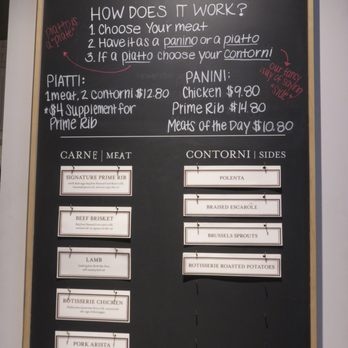 HOW DOES IT WORK?
1 Choose Your meat
2 Have it as a panino or a piatto
3. If a piatto choose your contorni!
Piatto is
a "plate"
our fancy
way of saying
"side"
PIATTI:
1 meat, 2 Contorni $12.80
*$4 Supplement for
Prime Rib
PANINI:
Chicken $9.80
Prime Rib $14.80
Meats of the Day $10.80
CARNE | MEAT
SIGNATURE PRIME RIB
BEEF BRISKET
LAMB
ROTISSERIE CHICKEN
PORK ARISTA
CONTORNI | SIDES
POLENTA
BRAISED ESCAROLE
BRUSSELS SPROUTS
ROTISSERIE ROASTED POTATOES